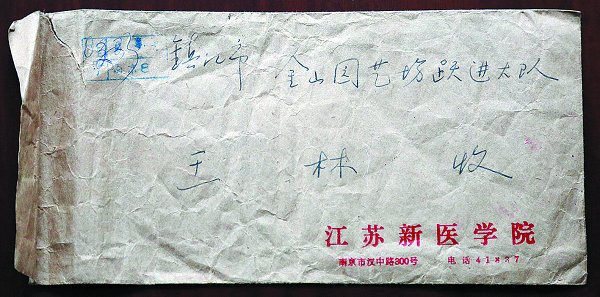 镇江市 金山园艺场跃进大队
王林收
江苏新医学院
南京市汉中路300号 电话41837